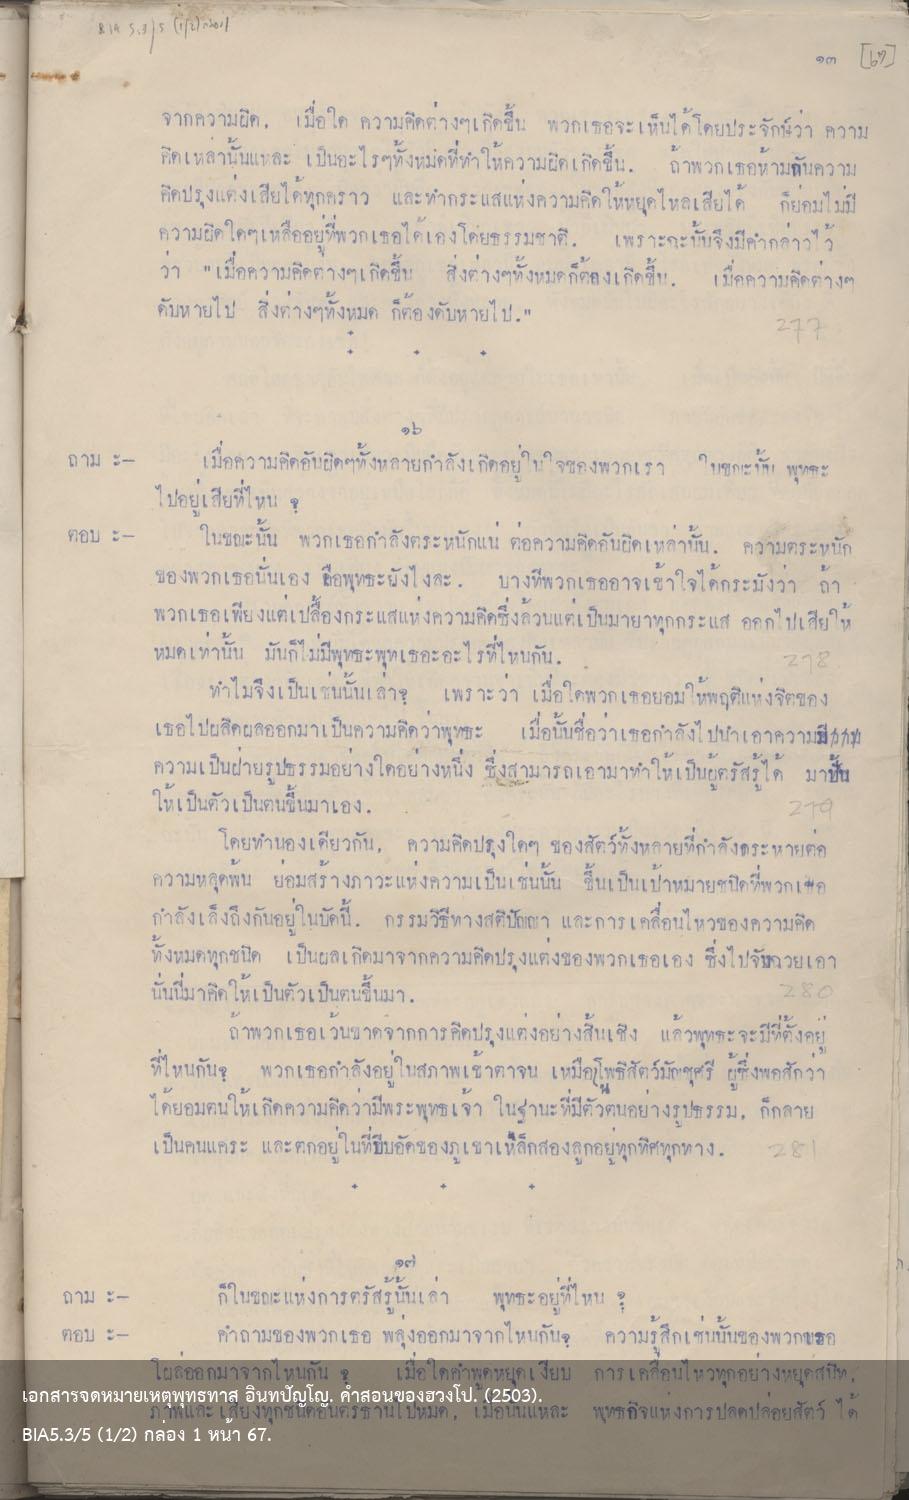 BIA 5.3/5 (1/2) กล่อง 1
๑๓ [๖๗]
จากความผิด. เมื่อใด ความคิดต่างๆเกิดขึ้น พวกเธอจะเห็นได้โดยประจักษ์ว่า ความ
คิดเหล่านั้นแหละ เป็นอะไรๆทั้งหมดที่ทำให้ความผิดเกิดขึ้น. ถ้าพวกเธอห้ามกันความ
คิดปรุงแต่งเสียได้ทุกคราว และทำกระแสแห่งความคิดให้หยุดไหลเสียได้ ก็ย่อมไม่มี
ความผิดใดๆเหลืออยู่ที่พวกเธอได้เองโดยธรรมชาติ. เพราะฉะนั้นจึงมีคำกล่าวไว้
ว่า "เมื่อความคิดต่างๆเกิดขึ้น สิ่งต่างๆทั้งหมดก็ต้องเกิดขึ้น. เมื่อความคิดต่างๆ
ดับหายไป สิ่งต่างๆทั้งหมด ก็ต้องดับหายไป."
277
๑๖
ถาม ะ– เมื่อความคิดอันผิดๆทั้งหลายกำลังเกิดอยู่ในใจของพวกเรา ในขณะนั้น พุทธะ
ไปอยู่เสียที่ไหน ?
ตอบ ะ– ในขณะนั้น พวกเธอกำลังตระหนักแน่ ต่อความคิดอันผิดเหล่านั้น. ความตระหนัก
ของพวกเธอนั่นเอง คือพุทธะยังไงละ. บางทีพวกเธออาจเข้าใจได้กระมังว่า ถ้า
พวกเธอเพียงแต่เปลื้องกระแสแห่งความคิดซึ่งล้วนแต่เป็นมายาทุกกระแส ออกไปเสียให้
หมดเท่านั้น มันก็ไม่มีพุทธะพุทเธอะอะไรที่ไหนกัน.
278
ทำไมจึงเป็นเช่นนั้นเล่า? เพราะว่า เมื่อใดพวกเธอยอมให้พฤติแห่งจิตของ
เธอไปผลิตผลออกมาเป็นความคิดว่าพุทธะ เมื่อนั้นชื่อว่าเธอกำลังไปนำเอาความมี
ความเป็นฝ่ายรูปธรรมอย่างใดอย่างหนึ่ง ซึ่งสามารถเอามาทำให้เป็นผู้ตรัสรู้ได้ มาปั้น
ให้เป็นตัวเป็นตนขึ้นมาเอง.
279
โดยทำนองเดียวกัน, ความคิดปรุงใดๆ ของสัตว์ทั้งหลายที่กำลังกระหายต่อ
ความหลุดพ้น ย่อมสร้างภาวะแห่งความเป็นเช่นนั้น ขึ้นเป็นเป้าหมายชนิดที่พวกเธอ
กำลังเล็งถึงกันอยู่ในบัดนี้. กรรมวิธีทางสติปัญญา และการเคลื่อนไหวของความคิด
ทั้งหมดทุกชนิด เป็นผลเกิดมาจากความคิดปรุงแต่งของพวกเธอเอง ซึ่งไปจับฉวยเอา
นั่นนี่มาคิดให้เป็นตัวเป็นตนขึ้นมา.
280
ถ้าพวกเธอเว้นขาดจากการคิดปรุงแต่งอย่างสิ้นเชิง แล้วพุทธะจะมีที่ตั้งอยู่
ที่ไหนกัน? พวกเธอกำลังอยู่ในสภาพเข้าตาจน เหมือนโพธิสัตว์มัญชุศรี ผู้ซึ่งพอสักว่า
ได้ยอมตนให้เกิดความคิดว่ามีพระพุทธเจ้า ในฐานะที่มีตัวตนอย่างรูปธรรม, ก็กลาย
เป็นคนแคระ และตกอยู่ในที่บีบอัดของภูเขาเหล็กสองลูกอยู่ทุกทิศทุกทาง.
281
๑๗
ถาม ะ– ก็ในขณะแห่งการตรัสรู้นั้นเล่า พุทธะอยู่ที่ไหน ?
ตอบ ะ– คำถามของพวกเธอ พลุ่งออกมาจากไหนกัน? ความรู้สึกเช่นนั้นของพวกเธอ
โผล่ออกมาจากไหนกัน ? เมื่อใดคำพูดหยุดเงียบ การเคลื่อนไหวทุกอย่างหยุดสนิท,
ภาพและเสียงทุกชนิดอันตรธานไปหมด, เมื่อนั้นแหละ พุทธกิจแห่งการปลดปล่อยสัตว์ ได้
เอกสารจดหมายเหตุพุทธทาส อินทปัญโญ. คำสอนของฮวงโป. (2503).
BIA5.3/5 (1/2) กล่อง 1 หน้า 67.